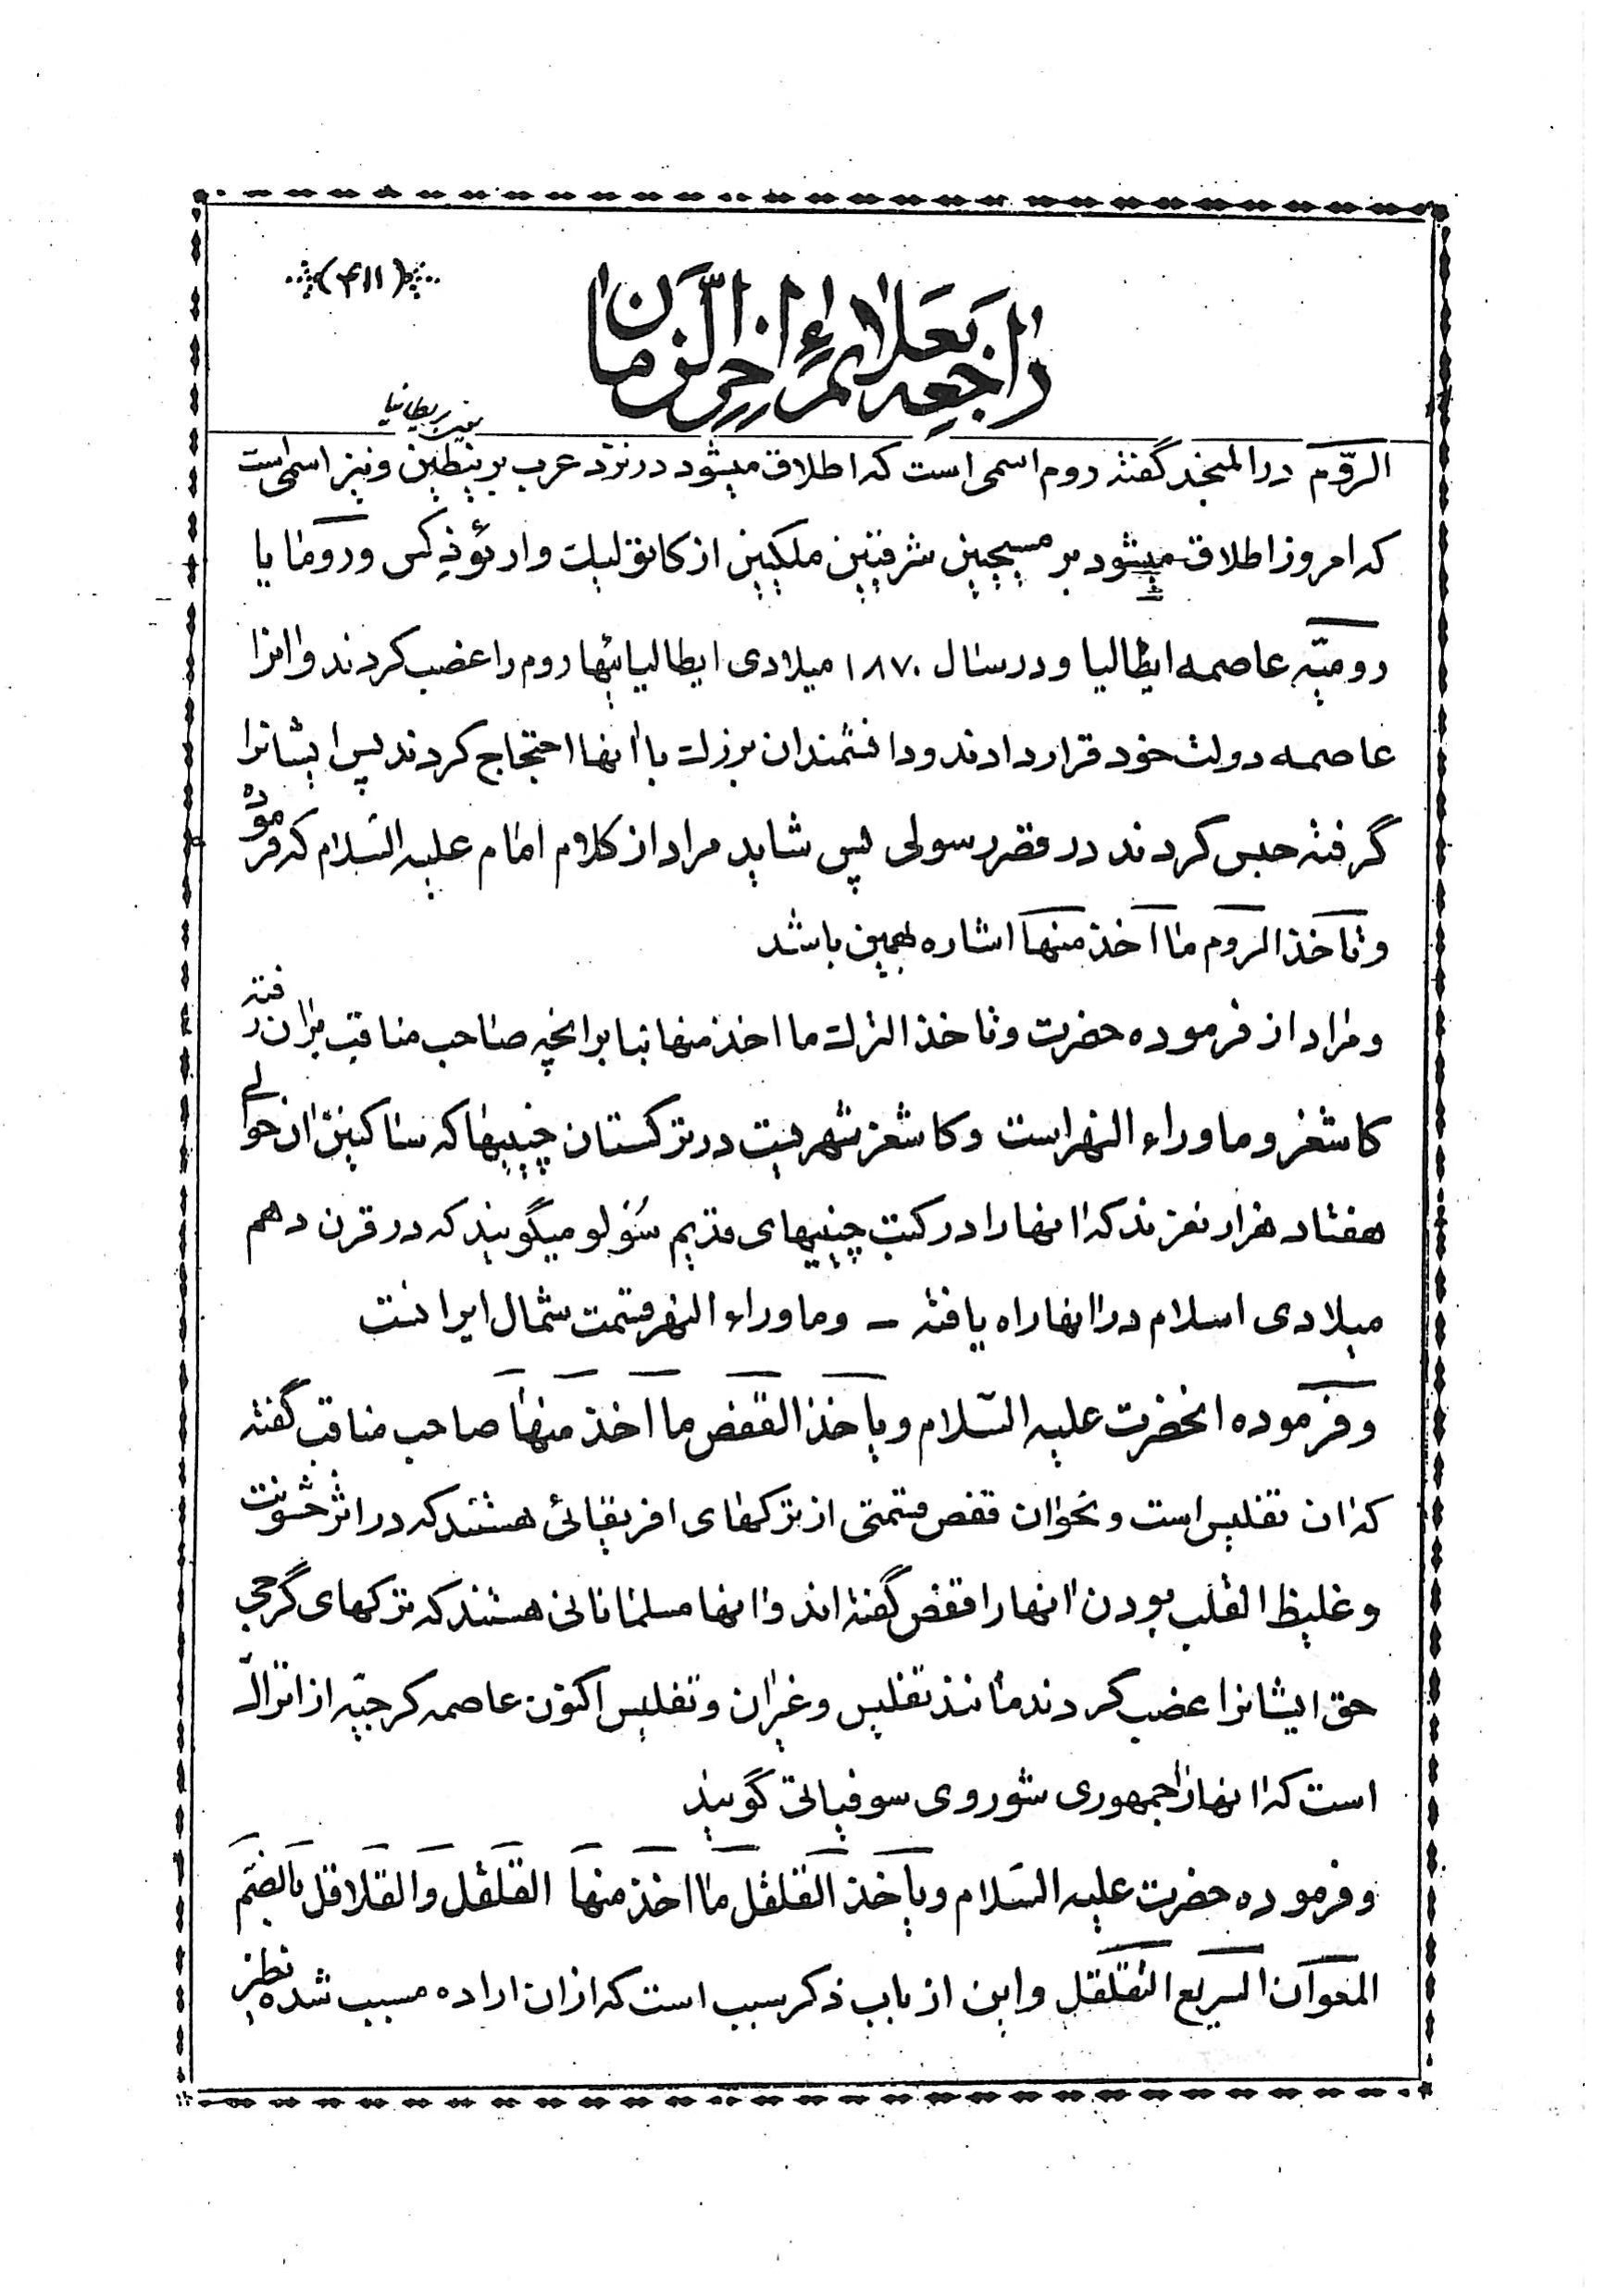 (۴۱۱)
راجعه بعلائم آخر الزمان
یعنی بریطانیا
الرّوم در المنجد گفته روم اسمی است که اطلاق میشود در نزد عرب بر بیزنطیین و نیز اسمی است
که امروز اطلاق میشود بر مسیحیین شرقیین ملکیین از کاتولیك و ارثوذکس و روما یا
رومیّه عاصمه ایطالیا و در سال ۱۸۷۰ میلادی ایطالیائیها روم را غصب کردند و آنرا
عاصمه دولت خود قرار دادند و دانشمندان بزرك با آنها احتجاج کردند پس ایشانرا
گرفته حبس کردند در قصر رسولی پس شاید مراد از کلام امام علیه السّلام که فرموده
وتاخذ الروم ما اخذ منها اشاره بهمین باشد
و مراد از فرموده حضرت وتاخذ الترك ما اخذ منها بنا بر انچه صاحب مناقب بران رفته
کاشغر و ماوراء النهر است و کاشغر شهریست در ترکستان چینیها که ساکنین ان حوالی
هفتاد هزار نفرند که انها را در کتب چینیهای قدیم سُولو میگویند که در قرن دهم
میلادی اسلام در انها راه یافته – و ماوراء النهر قسمت شمال ایرانست
و فرموده انحضرت علیه السّلام ویاخذ القفص ما اخذ منها صاحب مناقب گفته
که ان تفلیس است و نحوان قفص قسمتی از ترکهای افریقائی هستند که در اثر خشونت
و غلیظ القلب بودن انها را قفص گفته اند و انها مسلمانانی هستند که ترکهای گرجی
حق ایشانرا غصب کردند مانند تفلیس و غیران و تفلیس اکنون عاصمه کرجیّه از اتراك
است که انها را جمهوری شوروی سوفیاتی گویند
و فرموده حضرت علیه السّلام ویاخذ القلقل ما اخذ منها القلقل والقلاقل بالضّم
المعوان السریع التقلقل و این از باب ذکر سبب است که ازان اراده مسبب شده نظیر